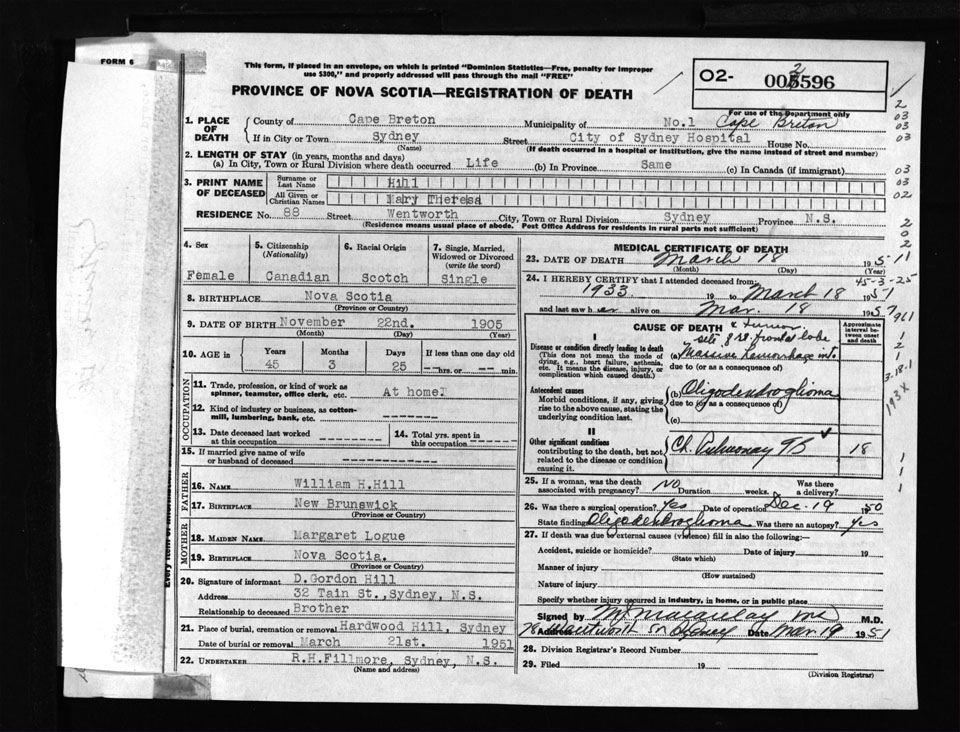 FORM 6
This form, if placed in an envelope, on which is printed "Dominion Statistics—Free, penalty for improper
use $300," and properly addressed will pass through the mail "FREE"
PROVINCE OF NOVA SCOTIA—REGISTRATION OF DEATH
02-
596
For use of the Department only
1. PLACE OF DEATH
County of Cape Breton Municipality of No.1 Cape Breton
If in City or Town Sydney Street City of Sydney Hospital House No.
(Name) (If death occurred in a hospital or institution, give the name instead of street and number)
2. LENGTH OF STAY (in years, months and days)
(a) In City, Town or Rural Division where death occurred Life (b) In Province Same (c) In Canada (if immigrant)
3. PRINT NAME OF DECEASED
Surname or Last Name Hill
All Given or Christian Names Mary Theresa
RESIDENCE No. 88 Street Wentworth City, Town or Rural Division Sydney Province N.S.
(Residence means usual place of abode. Post Office Address for residents in rural parts not sufficient)
4. Sex
Female
5. Citizenship
(Nationality)
Canadian
6. Racial Origin
Scotch
7. Single, Married,
Widowed or Divorced
(write the word)
Single
8. BIRTHPLACE Nova Scotia
(Province or Country)
9. DATE OF BIRTH November 22nd. 1905
(Month) (Day) (Year)
10. AGE in
Years Months Days If less than one day old
45 3 25 --hrs. or -- min.
OCCUPATION
11. Trade, profession, or kind of work as
spinner, teamster, office clerk, etc. At home.
12. Kind of industry or business, as cotton-
mill, lumbering, bank, etc.
13. Date deceased last worked
at this occupation
14. Total yrs. spent in
this occupation
15. If married give name of wife
or husband of deceased
FATHER
16. NAME William H.Hill
17. BIRTHPLACE New Brunswick
(Province or Country)
MOTHER
18. MAIDEN NAME Margaret Logue
19. BIRTHPLACE Nova Scotia.
(Province or Country)
20. Signature of informant D.Gordon Hill
Address 32 Tain St.,Sydney, N.S.
Relationship to deceased Brother
21. Place of burial, cremation or removal Hardwood Hill, Sydney
Date of burial or removal March 21st. 1951
22. UNDERTAKER R.H.Fillmore, Sydney, N.S.
(Name and address)
MEDICAL CERTIFICATE OF DEATH
23. DATE OF DEATH March 18 1951
(Month) (Day) (Year)
24. I HEREBY CERTIFY that I attended deceased from:
1933 19 to March 18 1951
and last saw her alive on Mar. 18 1951
CAUSE OF DEATH
Approximate
interval between
onset and death
I
Disease or condition directly leading to death
(This does not mean the mode of
dying, e.g., heart failure, asthenia,
etc. It means the disease, injury, or
complication which caused death.)
& tumor
frontal lobe
(a) Massive hemorrhage into
due to (or as a consequence of)
Antecedent causes
Morbid conditions, if any, giving
rise to the above cause, stating the
underlying condition last.
(b) Oligodendroglioma
due to (or as a consequence of)
(c)
II
Other significant conditions
contributing to the death, but not
related to the disease or condition
causing it.
Ch. Pulmonary TB 18
25. If a woman, was the death
associated with pregnancy? No Duration weeks. Was there a delivery?
26. Was there a surgical operation? Yes Date of operation Dec. 19 1950
State findings Oligodendroglioma Was there an autopsy? Yes
27. If death was due to external causes (violence) fill in also the following:—
Accident, suicide or homicide? Date of injury 19
(State which)
Manner of injury
(How sustained)
Nature of injury
Specify whether injury occurred in industry, in home, or in public place
Signed by M.D.
Address Wentworth St Sydney Date Mar 19 1951
28. Division Registrar's Record Number
29. Filed 19
(Division Registrar)
2
03
03
03
03
03
02
2
0
2
11
45-3-25
961
1
2
1
3.18.1
193X
1
1
1